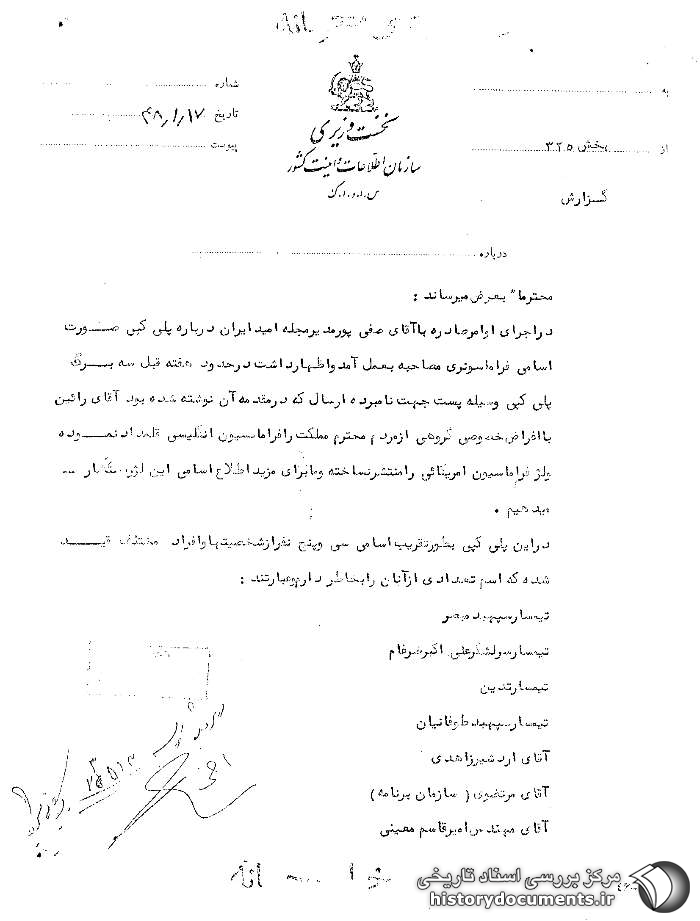 به
شماره
نخست وزیری
تاریخ ۴۸/۱/۱۷
سازمان اطلاعات و امنیت کشور
پیوست
س.ا.و.ا.ک
از بخش ۳۲۵
گزارش
درباره
محترما" بعرض میرساند :
در اجرای اوامر صادره با آقای صفی پور مدیر مجله امید ایران درباره پلی کپی صورت
اسامی فراماسونری مصاحبه بعمل آمد و اظهار داشت در حدود هفته قبل سه برگ
پلی کپی وسیله پست جهت نامبرده ارسال که در مقدمه آن نوشته شده بود آقای رائین
با اغراض خصوصی گروهی از مردم محترم مملکت را فراماسیون انگلیسی قلمداد نموده
ولژ فراماسیون امریکائی را منتشر نساخته و ما برای مزید اطلاع اسامی این لژ را انتشار
میدهیم .
در این پلی کپی بطور تقریب اسامی سی و پنج نفر از شخصیتها و افراد مختلف قید
شده که اسم تعدادی از آنان را بخاطر دارم و عبارتند :
تیمسار سپهبد مصر
تیمسار سرلشگر علی اکبر ضرغام
تیمسار تدین
تیمسار سپهبد طوفانیان
آقای اردشیر زاهدی
آقای مرتضوی ( سازمان برنامه )
آقای مهندس امیر قاسم معینی
مرکز بررسی اسناد تاریخی
historydocuments.ir